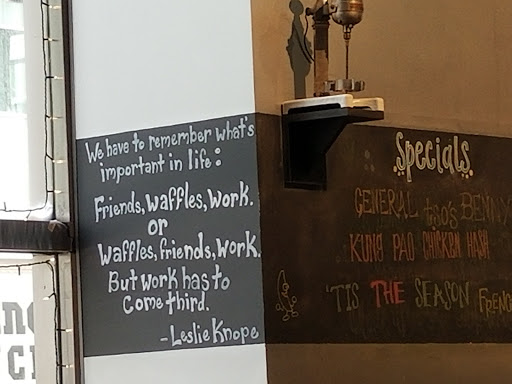 We have to remember what's
important in life:
Friends, waffles, work.
or
Waffles, friends, work.
But work has to
come third.
-Leslie Knope
Specials
GENERAL tso's BENNY
KUNG PAO CHICKEN HASH
'TIS THE SEASON FRENC